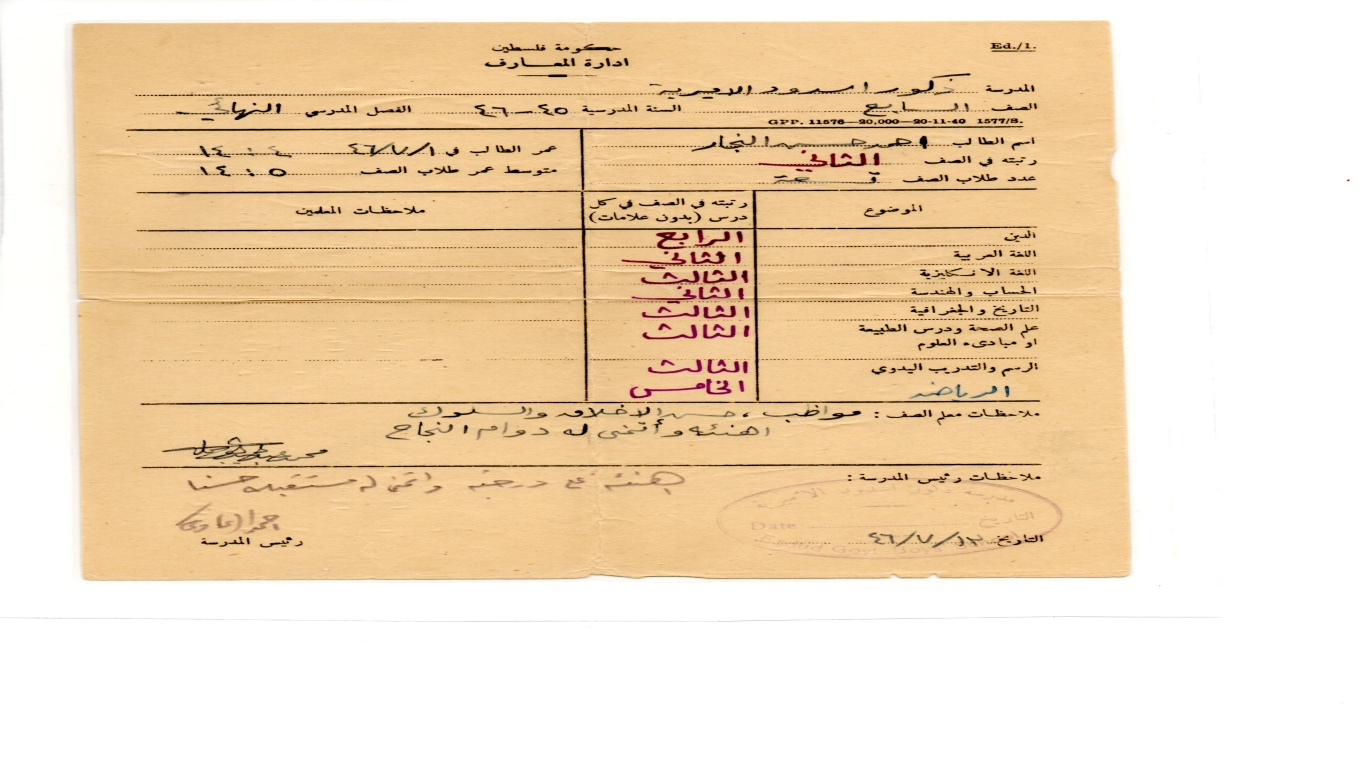 حكومة فلسطين
ادارة المعارف
Ed./1.
المدرسة ذكور اسدود الاميرية
الصف السابع السنة المدرسية ٤٥-٤٦ الفصل المدرسي النهائي
GPP. 11576—20,000—20-11-40 1577/S.
اسم الطالب احمد حسن النجار
عمر الطالب في ٤٦/٧/١ ١٤:٤
رتبته في الصف الثاني
عدد طلاب الصف
متوسط عمر طلاب الصف ١٤:٥
الموضوع
رتبته في الصف في كل درس (بدون علامات)
ملاحظات المعلمين
الدين الرابع
اللغة العربية الثاني
اللغة الانكليزية الثالث
الحساب والهندسة الثاني
التاريخ والجغرافية الثالث
علم الصحة ودرس الطبيعة او مبادىء العلوم الثالث
الرسم والتدريب اليدوي الثالث
الرياضه الخامس
ملاحظات معلم الصف : مواظب ، حسن الاخلاق والسلوك
اهنئه وأتمنى له دوام النجاح
ملاحظات رئيس المدرسة :
اهنئه على درجته واتمنى له مستقبلا حسنا
التاريخ
Date
Esdud Govt. Boys
التاريخ ٤٦/٧/١٣
رئيس المدرسة